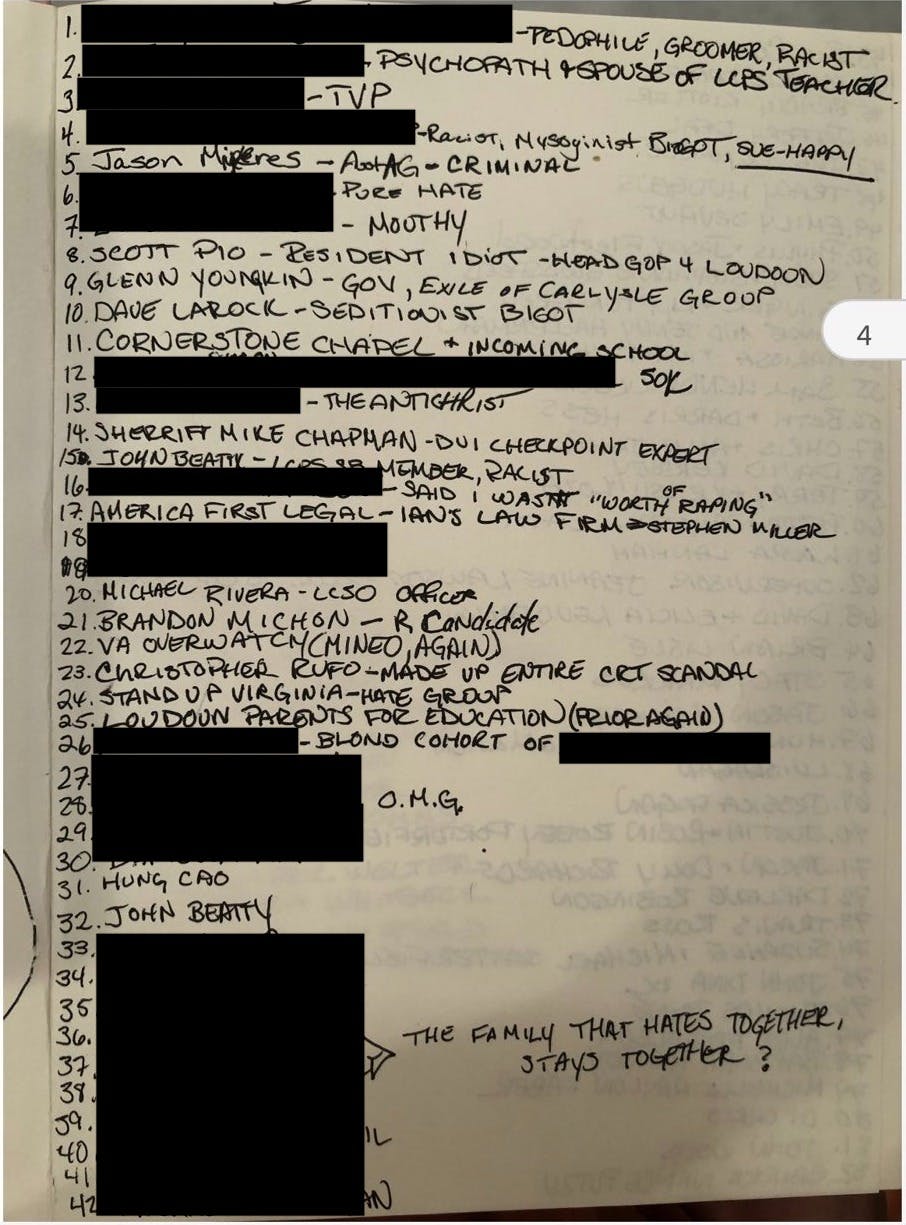 1. -PEDOPHILE, GROOMER, RACIST
2. - PSYCHOPATH & SPOUSE OF LCPS TEACHER.
3 - TVP
4. -Racist, Mysoginist BIGOT, SUE-HAPPY
5. Jason - AG - CRIMINAL
6. - PURE HATE
7. - MOUTHY
8. SCOTT PIO - RESIDENT IDIOT -HEAD GOP 4 LOUDOON
9. GLENN YOUNGKIN - GOV, EXILE OF CARLYSLE GROUP
10. DAVE LAROCK - SEDITIONIST BIGOT
11. CORNERSTONE CHAPEL + INCOMING SCHOOL
12 50K
13. - THE ANTICHRIST
14. SHERRIFF MIKE CHAPMAN -DUI CHECKPOINT EXPERT
15. JOHN BEATTY - LCPS SB MEMBER, RACIST
16. - SAID I WASN'T "WORTH OF RAPING"
17. AMERICA FIRST LEGAL - IAN'S LAW FIRM STEPHEN MILLER
18
19
20. MICHAEL RIVERA - LCSO OFFICER
21. BRANDON MICHON - R Candidate
22. VA OVERWATCH (MINEO, AGAIN)
23. CHRISTOPHER RUFO - MADE UP ENTIRE CRT SCANDAL
24. STAND UP VIRGINIA - HATE GROUP
25. LOUDOUN PARENTS FOR EDUCATION (PRIOR AGAIN)
26 - BLOND COHORT OF
27.
28. O.M.G.
29.
30.
31. HUNG CAO
32. JOHN BEATTY
33.
34.
35
36. THE FAMILY THAT HATES TOGETHER,
37. STAYS TOGETHER?
38.
39.
40
41
42
4